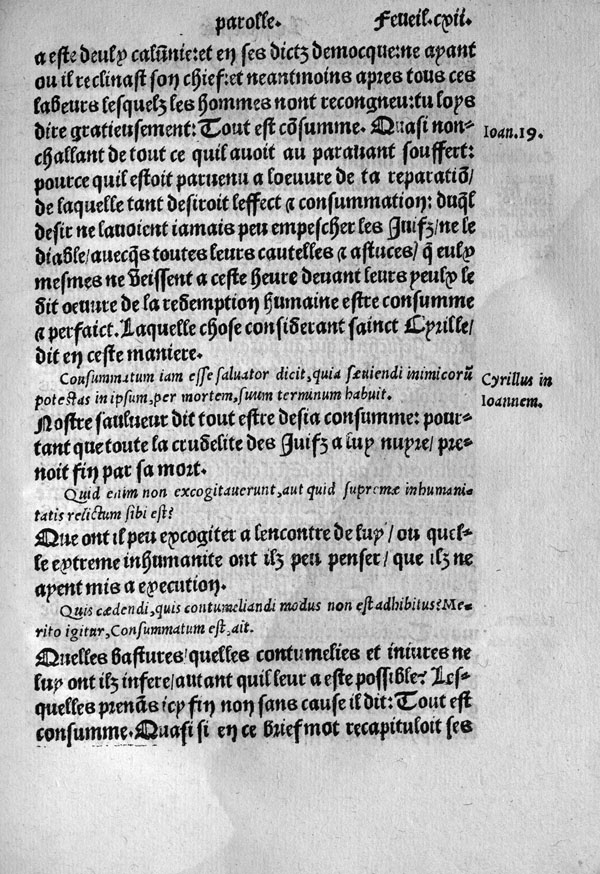 parolle. Feueil.cxii.
a este deuly calũnie:et en ses dictz democque:ne ayant
ou il reclinast son chief:et neantmoins apres tous ces
labeurs lesquelz les hommes nont recongneu:tu loys
dire gratieusement: Tout est cõsumme. Quasi non-
challant de tout ce quil auoit au parauant souffert:
Ioan.19.
pource quil estoit paruenu a loeuure de ta reparatiõ/
de laquelle tant desiroit leffect & consummation: duq̃l
desir ne lauoient iamais peu empescher les Juifz/ne le
diable/auecq̃s toutes leurs cautelles & astuces/ q̃ eulx
mesmes ne veissent a ceste heure deuant leurs yeulx le
dit oeuure de la redemption humaine estre consumme
& perfaict. Laquelle chose considerant sainct Cyrille/
dit en ceste maniere.
Consummatum iam esse saluator dicit,quia sæuiendi inimicorũ
potestas in ipsum,per mortem,suum terminum habuit.
Cyrillus in
Ioannem.
Nostre saulueur dit tout estre desia consumme: pour-
tant que toute la crudelite des Juifz a luy nuyre/ pre-
noit fin par sa mort.
Quid enim non excogitauerunt,aut quid supremæ inhumani-
tatis relictum sibi est?
Que ont il peu excogiter a lencontre de luy/ ou quel-
le extreme inhumanite ont ilz peu penser/ que ilz ne
ayent mis a execution.
Quis cædendi,quis contumeliandi modus non est adhibitus?Me-
rito igitur,Consummatum est,ait.
Quelles bastures/quelles contumelies et iniures ne
luy ont ilz infere/autant quil leur a este possible? Les-
quelles prenãs icy fin non sans cause il dit: Tout est
consumme. Quasi si en ce brief mot recapituloit ses